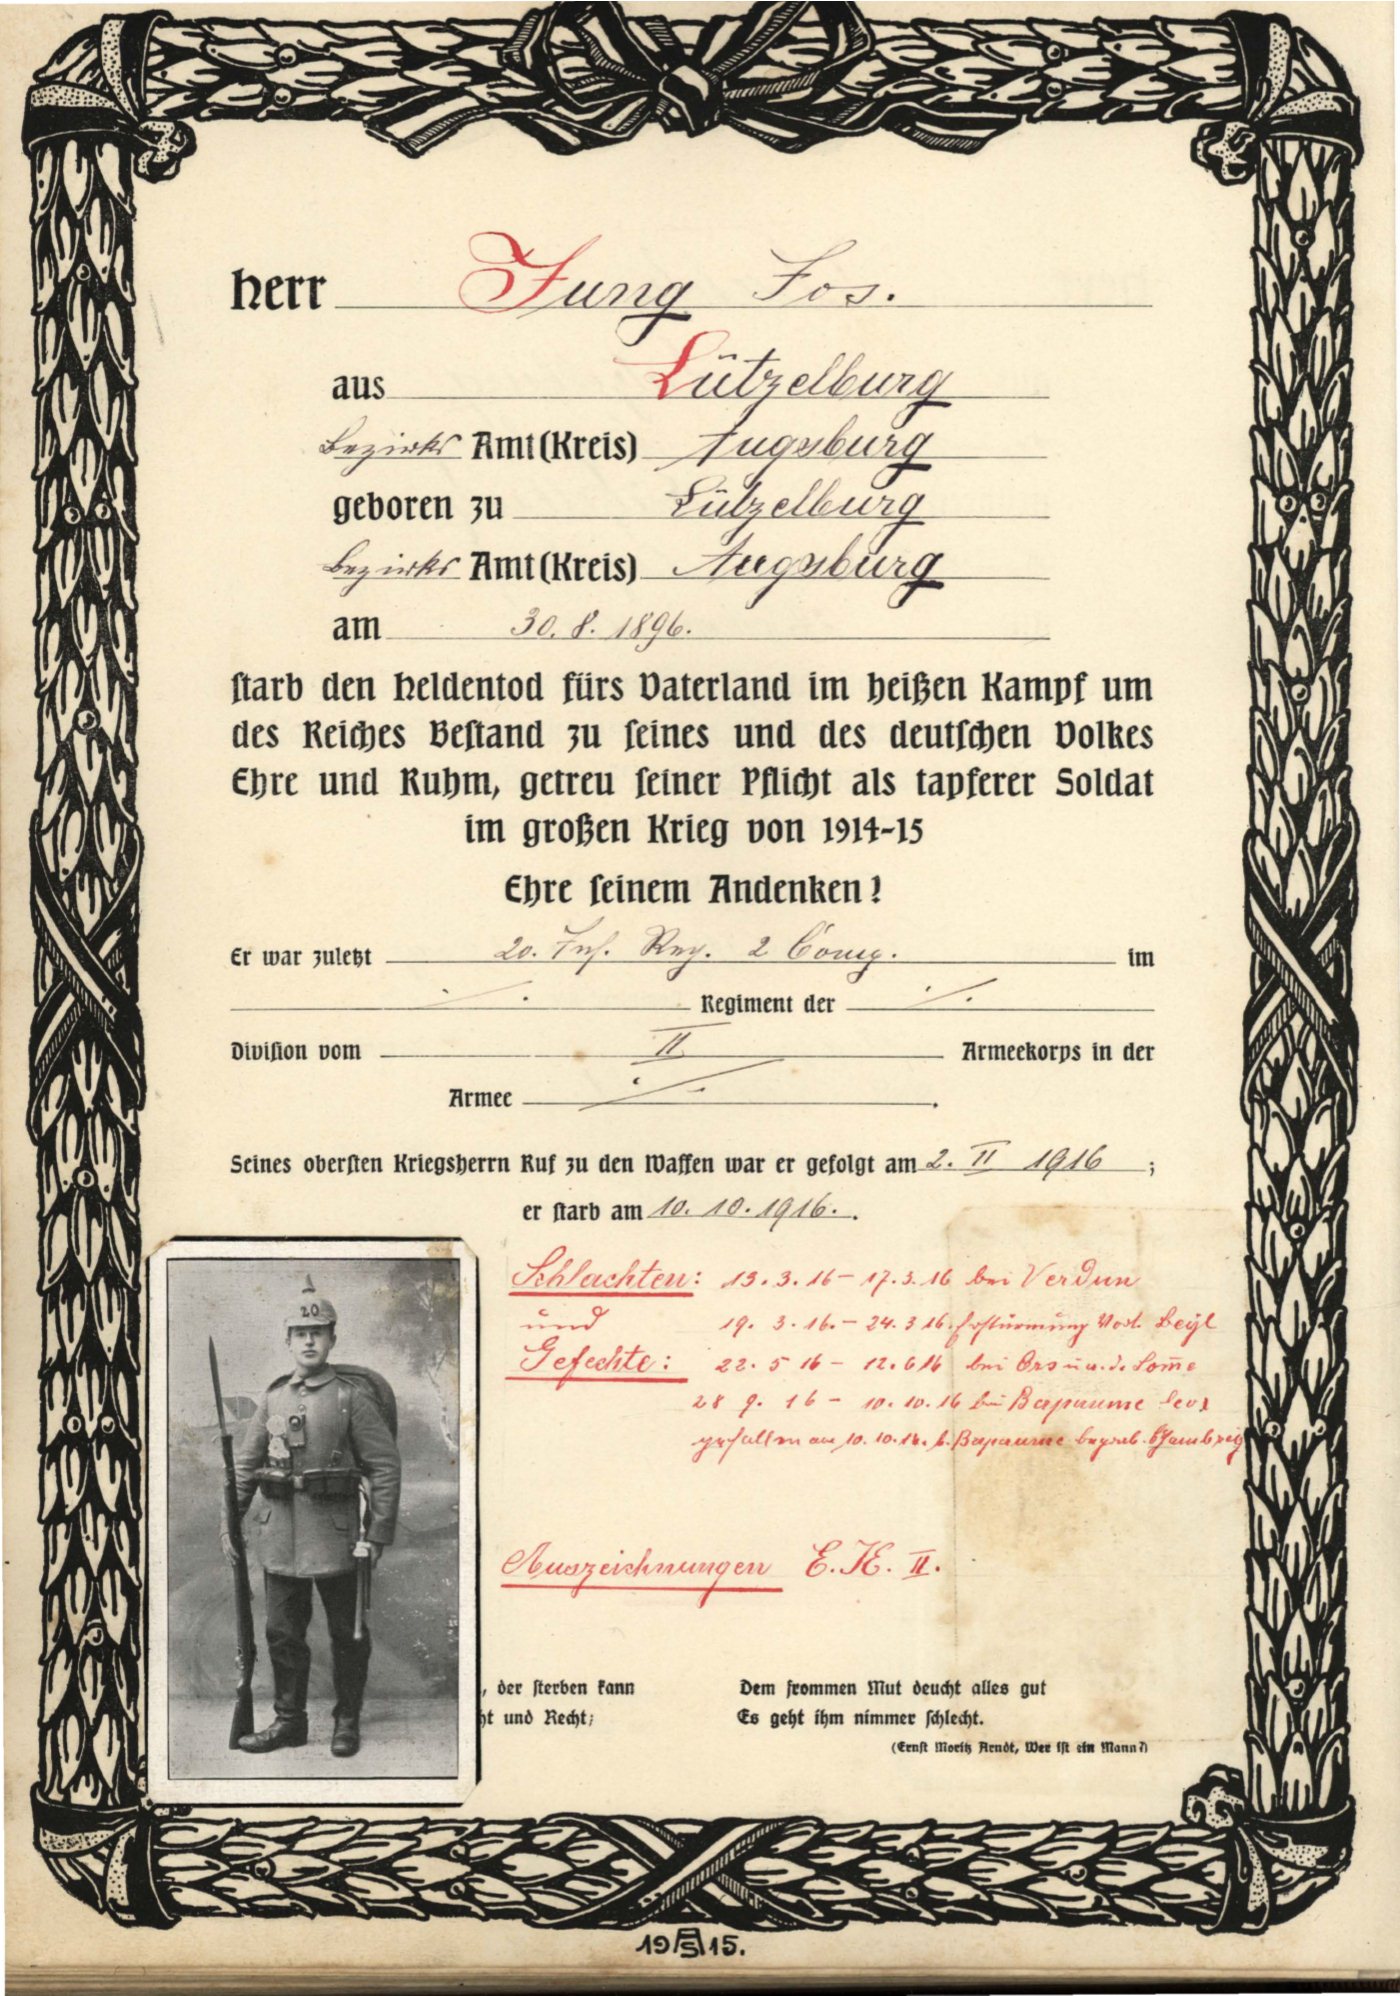 Herr Jung Jos.
aus Lützelburg
Bezirks Amt (Kreis) Augsburg
geboren zu Lützelburg
Bezirks Amt (Kreis) Augsburg
am 30. 8. 1896.
ſtarb den Heldentod fürs Vaterland im heißen Kampf um
des Reiches Beſtand zu ſeines und des deutſchen Volkes
Ehre und Ruhm, getreu ſeiner Pflicht als tapferer Soldat
im großen Krieg von 1914-15
Ehre ſeinem Andenken!
Er war zuletzt 20. Inf. Reg. 2 Comp. im
./. Regiment der ./.
Diviſion vom II Armeekorps in der
Armee ./. .
Seines oberſten Kriegsherrn Ruf zu den Waffen war er gefolgt am 2. II 1916 ;
er ſtarb am 10. 10. 1916. .
20
Schlachten: 13. 3. 16 – 17. 3. 16 bei Verdun
und 19. 3. 16. – 24. 3 16 Erstürmung
Gefechte: 22. 5 16 – 12. 6 16 bei
28 9. 16 – 10. 10. 16 bei Bapaume
gefallen am 10. 10. 16. b. Bapaume begrab.
Auszeichnungen E. K. II.
, der ſterben kann
ht und Recht;
Dem frommen Mut deucht alles gut
Es geht ihm nimmer ſchlecht.
(Ernſt Moritz Arndt, Wer iſt ein Mann?)
19 S 15.